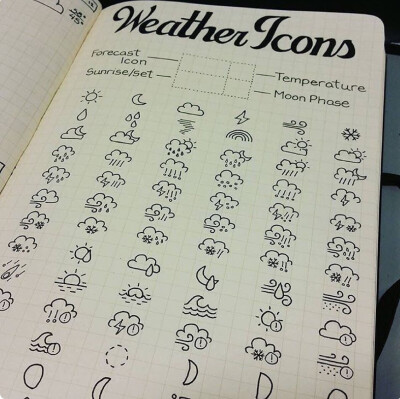 Weather Icons
Forecast Icon
Sunrise/set
Temperature
Moon Phase
58°
45°